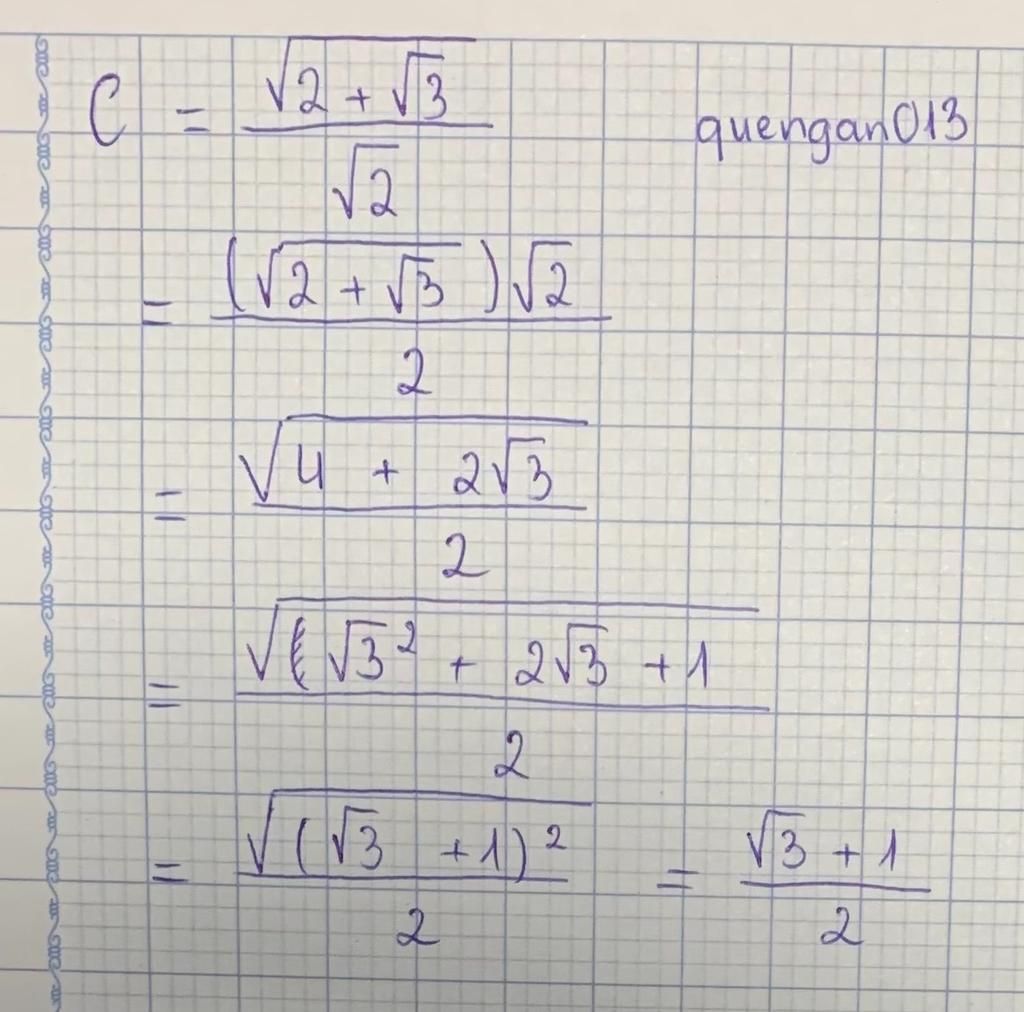 C = √(2 + √3) / √2 quengan013
= (√(2 + √3))√2 / 2
= √(4 + 2√3) / 2
= √(√3² + 2√3 + 1) / 2
= √((√3 + 1)²) / 2 = (√3 + 1) / 2